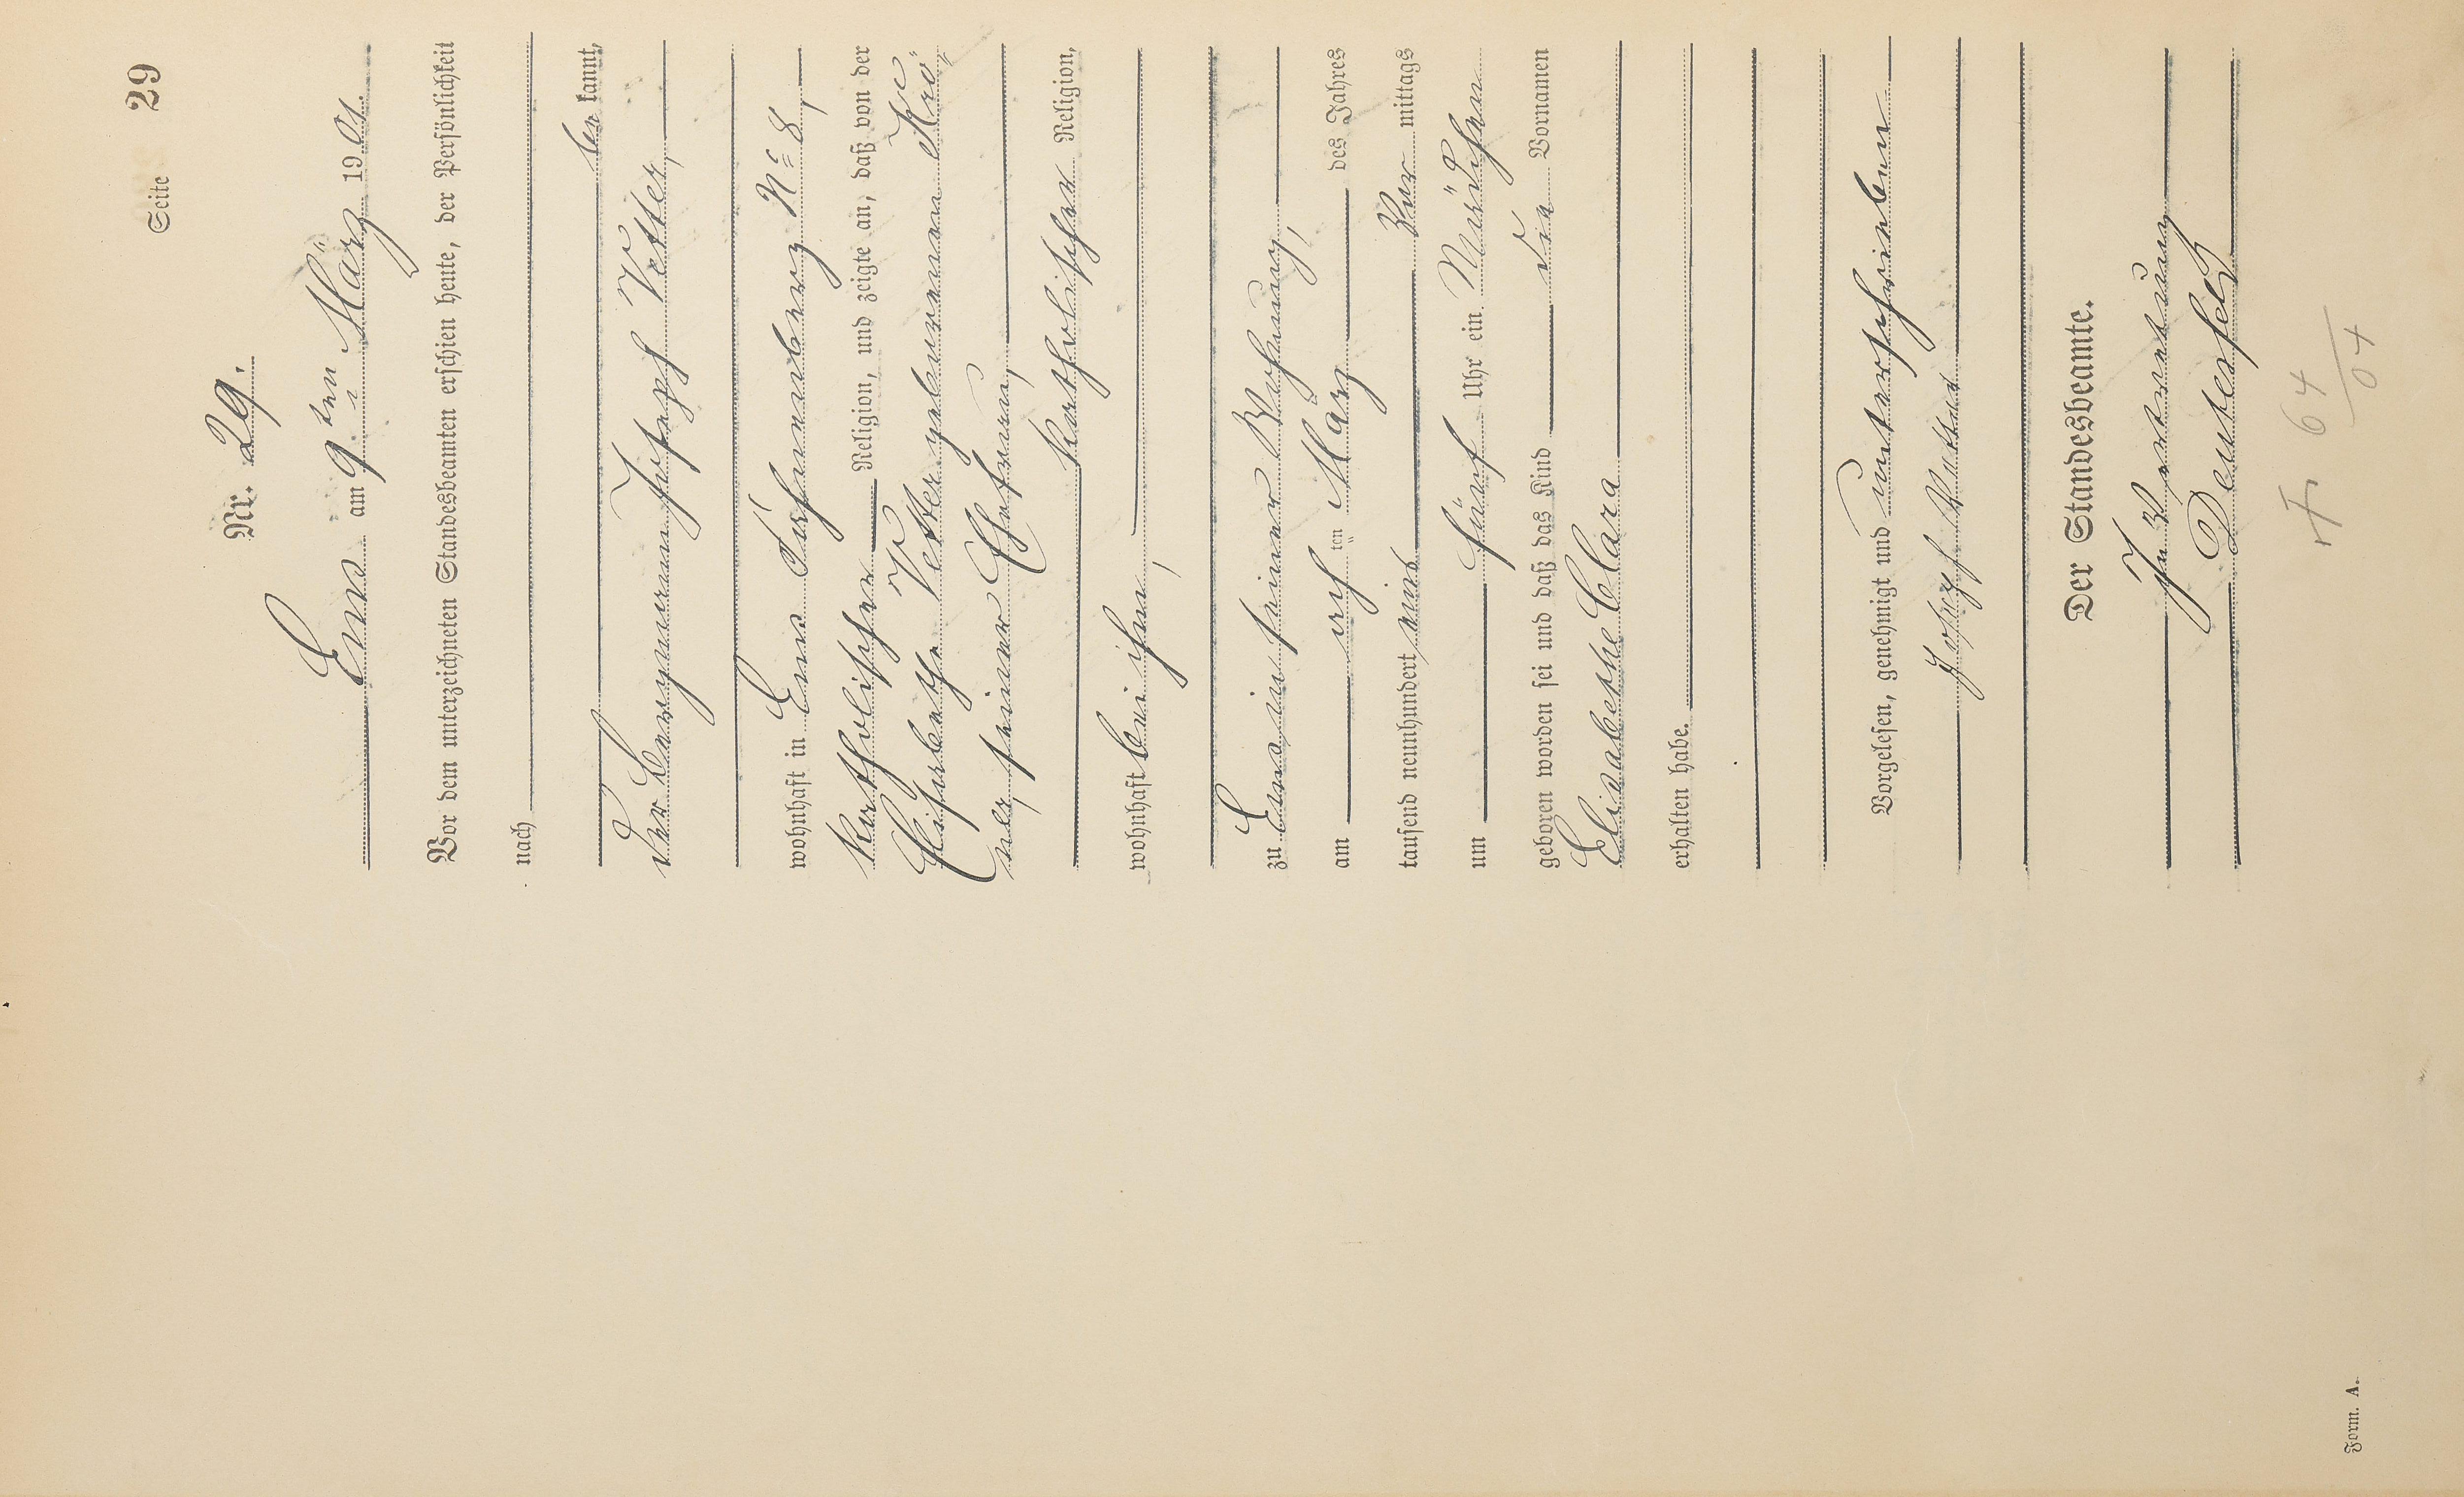 Seite 29
Nr. 29.
Ems am 9ten März 1901.
Vor dem unterzeichneten Standesbeamten erschien heute, der Persönlichkeit
nach
be kannt,
der Bergmann Joseph Vetter,
wohnhaft in Ems No 8,
katholischer Religion, und zeigte an, daß von der
Elisabethe Vetter geborenen Krö-
ner, seiner Ehefrau,
katholischer Religion,
wohnhaft bei ihm,
zu Ems in seiner Wohnung,
am ten März des Jahres
tausend neunhundert eins Vor mittags
um fünf Uhr ein Mädchen
geboren worden sei und daß das Kind die Vornamen
Elisabethe Clara
erhalten habe.
Vorgelesen, genehmigt und unterschrieben
Joseph Vetter
Der Standesbeamte.
In Vertretung
Deutesfeld
64
04
Form. A.